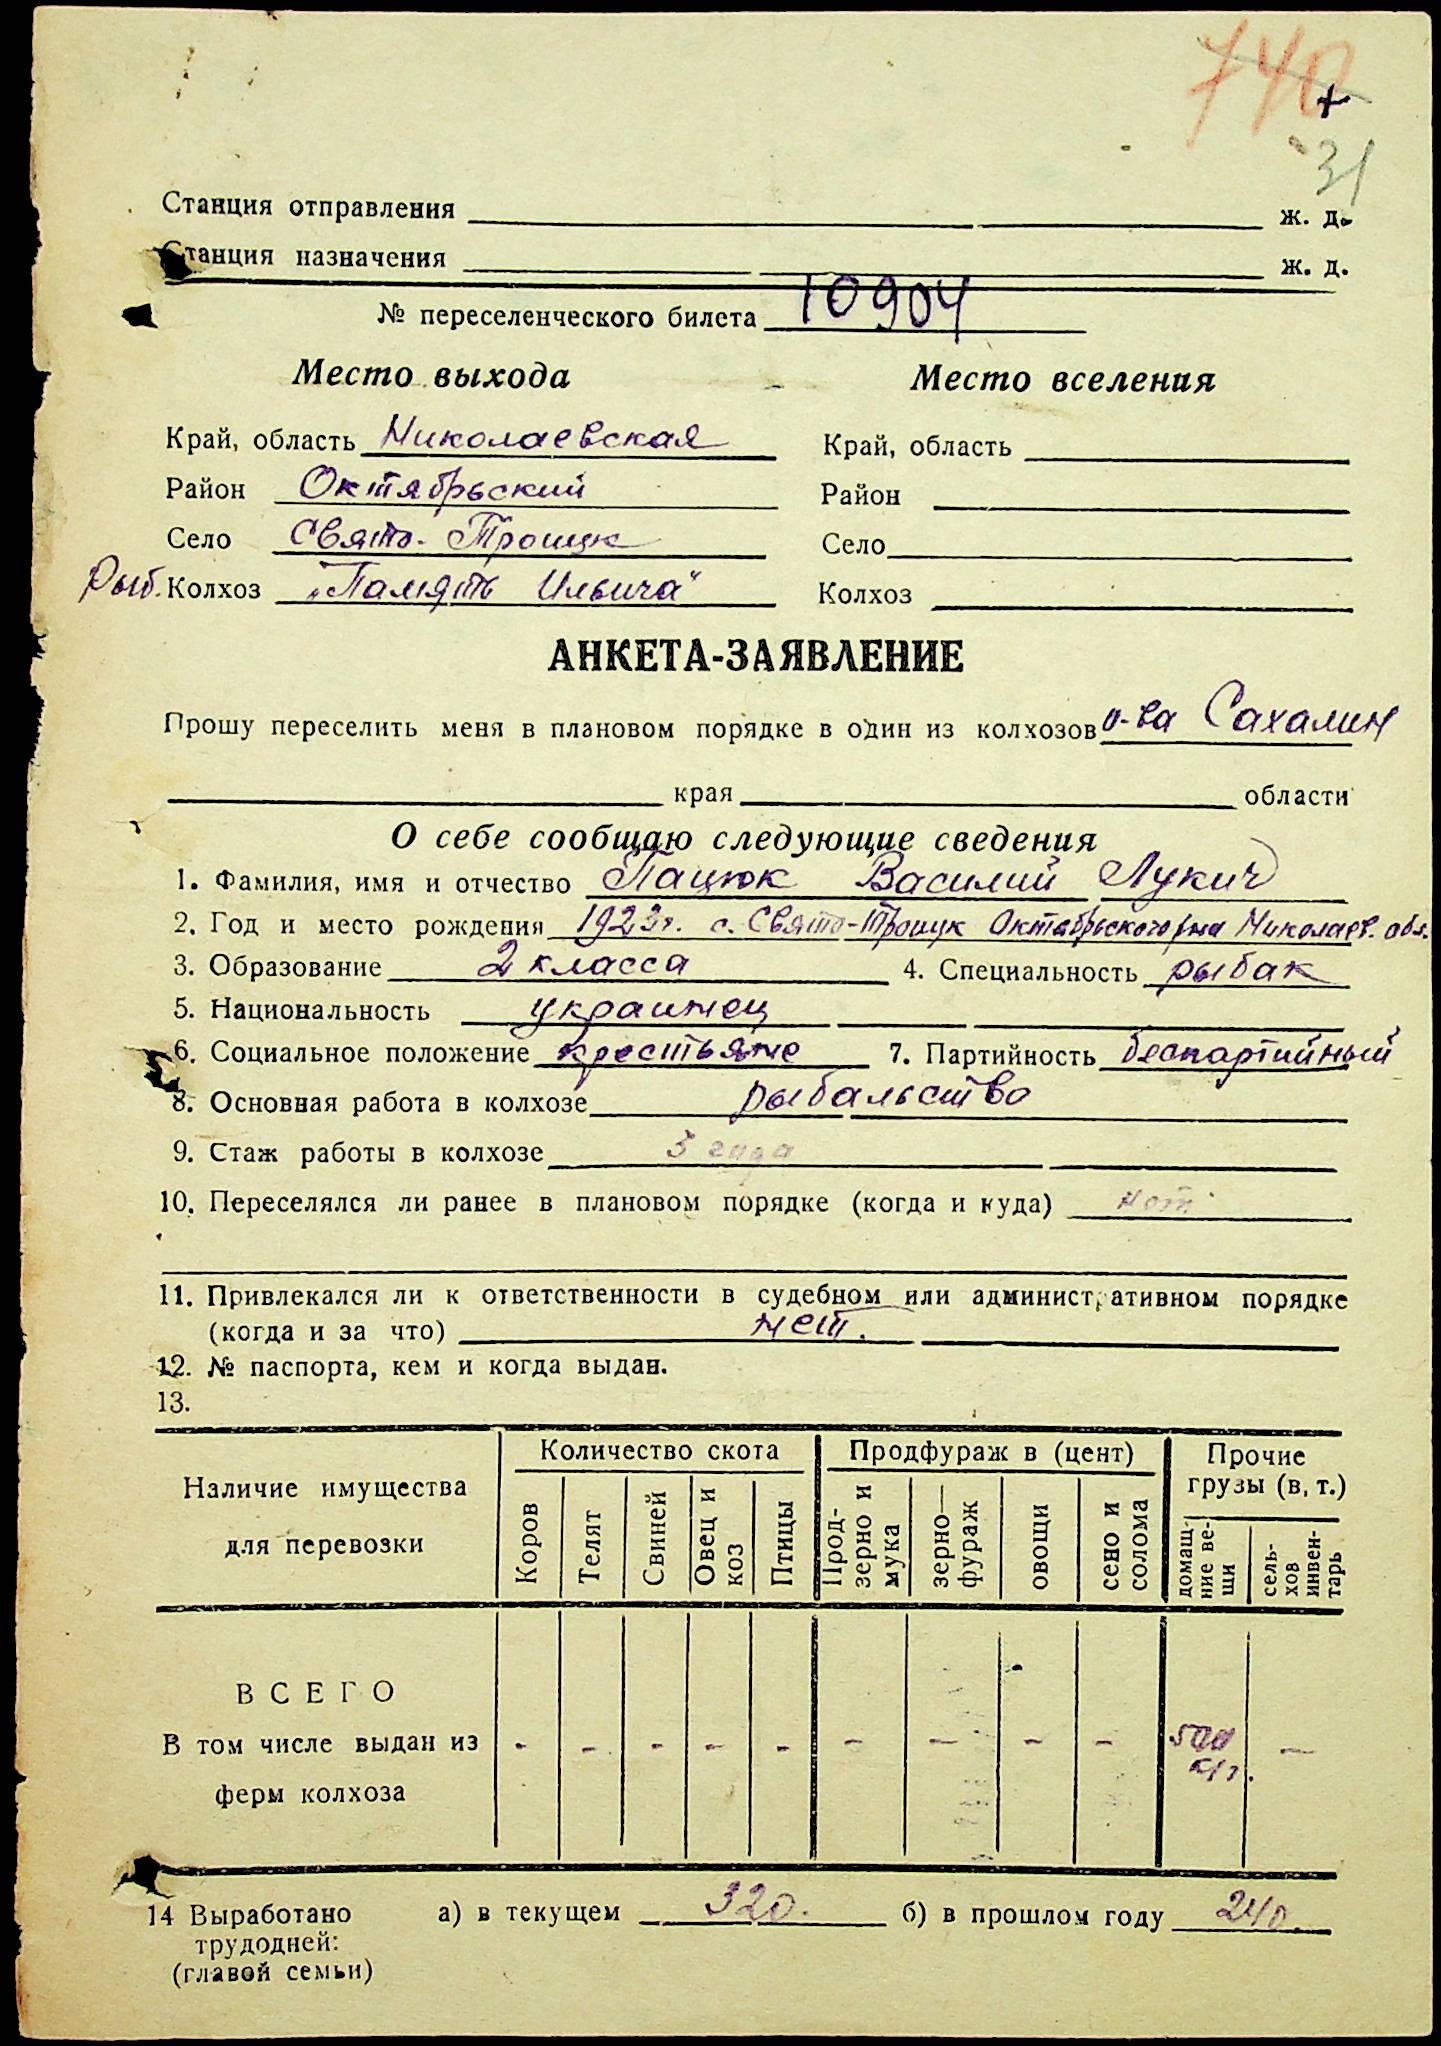 740
+
31
Станция отправления ж. д.
Станция назначения ж. д.
№ переселенческого билета 10904
Место выхода Место вселения
Край, область Николаевская Край, область
Район Октябрьский Район
Село Свято-Троицк Село
Рыб. Колхоз „Память Ильича" Колхоз
АНКЕТА-ЗАЯВЛЕНИЕ
Прошу переселить меня в плановом порядке в один из колхозов о-ва Сахалин
края области
О себе сообщаю следующие сведения
1. Фамилия, имя и отчество Пацюк Василий Лукич
2. Год и место рождения 1923г. с. Свято-Троицк Октябрьского р-на Николаев. обл.
3. Образование 2 класса 4. Специальность рыбак
5. Национальность украинец
6. Социальное положение крестьяне 7. Партийность беспартийный
8. Основная работа в колхозе рыбальство
9. Стаж работы в колхозе 3 года
10. Переселялся ли ранее в плановом порядке (когда и куда) нет
11. Привлекался ли к ответственности в судебном или административном порядке
(когда и за что) нет.
12. № паспорта, кем и когда выдан.
13.
Наличие имущества для перевозки Количество скота Продфураж в (цент) Прочие грузы (в, т.)
Коров Телят Свиней Овец и коз Птицы Прод-зерно и мука зерно—фураж овощи сено и солома домаш-ние ве-щи сель-хов инвен-тарь
ВСЕГО
В том числе выдан из - - - - - - - - - 500 кг. -
ферм колхоза
14 Выработано а) в текущем 320. б) в прошлом году 240.
трудодней:
(главой семьи)